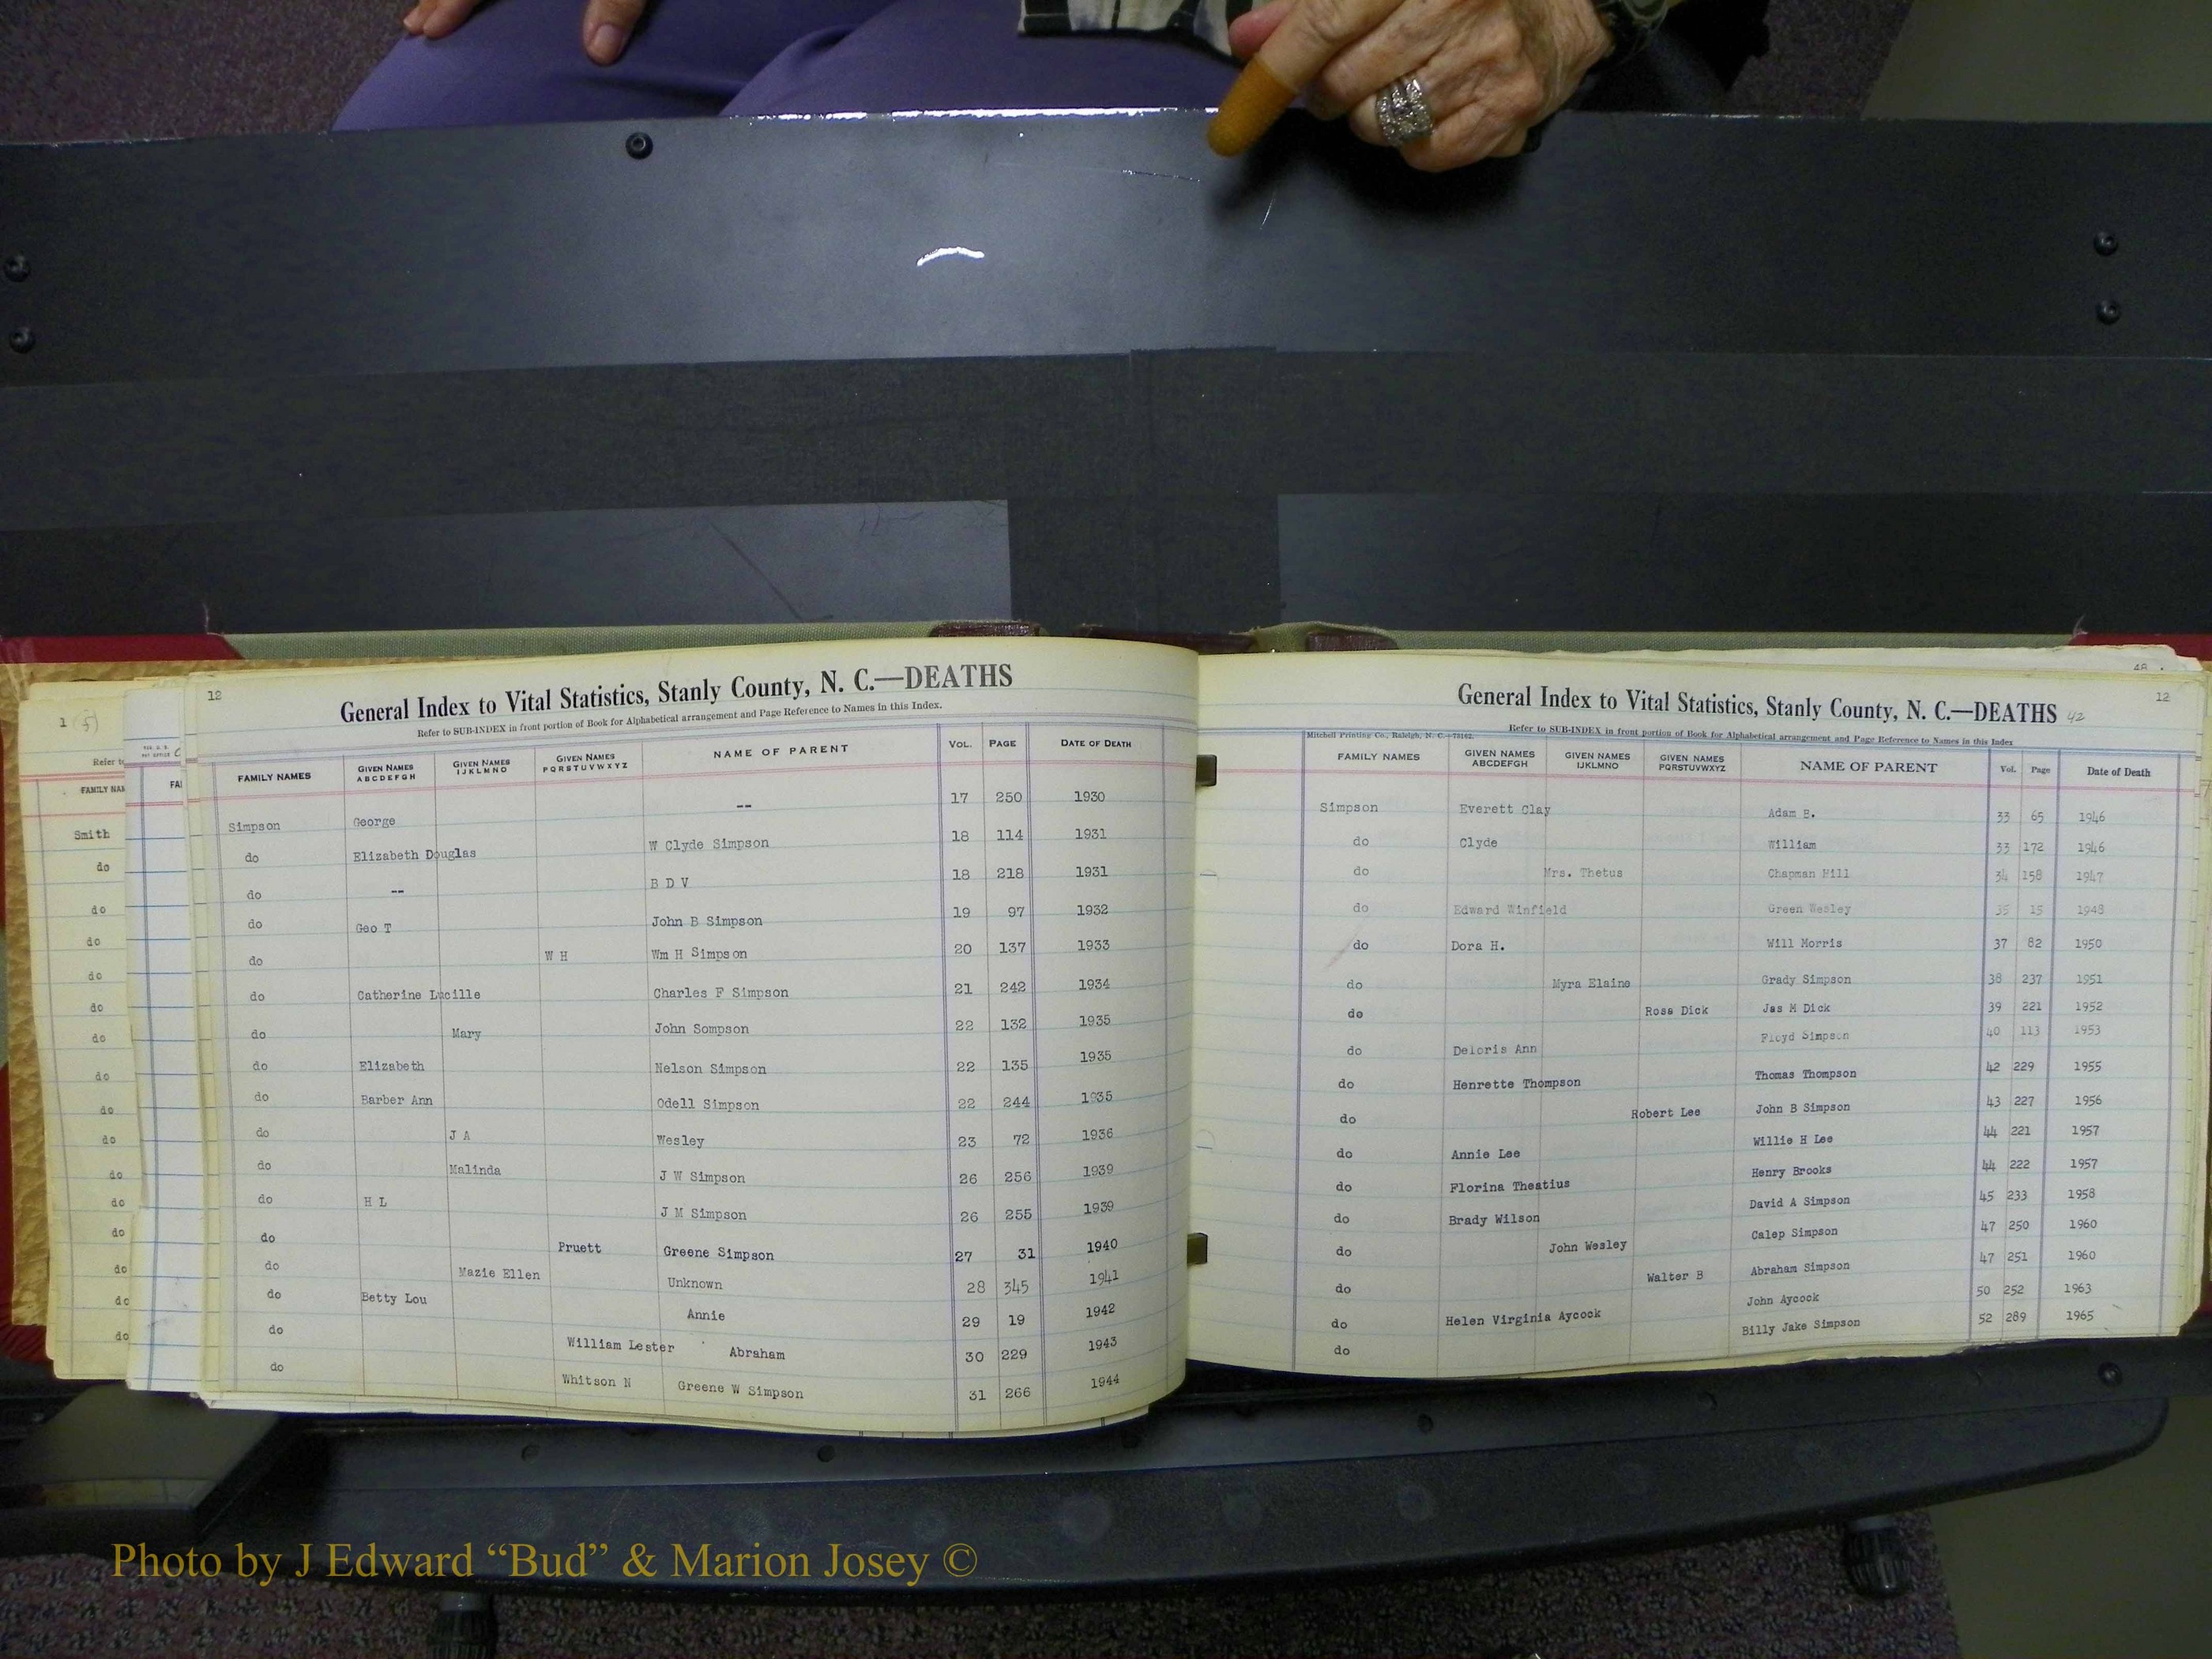 12
General Index to Vital Statistics, Stanly County, N. C.—DEATHS
Refer to SUB-INDEX in front portion of Book for Alphabetical arrangement and Page Reference to Names in this Index.
FAMILY NAMES GIVEN NAMES ABCDEFGH GIVEN NAMES IJKLMNO GIVEN NAMES PQRSTUVWXYZ NAME OF PARENT VOL. PAGE DATE OF DEATH
Simpson George -- 17 250 1930
do Elizabeth Douglas W Clyde Simpson 18 114 1931
do -- B D V 18 218 1931
do Geo T John B Simpson 19 97 1932
do W H Wm H Simpson 20 137 1933
do Catherine Lucille Charles F Simpson 21 242 1934
do Mary John Sompson 22 132 1935
do Elizabeth Nelson Simpson 22 135 1935
do Barber Ann Odell Simpson 22 244 1935
do J A Wesley 23 72 1936
do Malinda J W Simpson 26 256 1939
do H L J M Simpson 26 255 1939
do Pruett Greene Simpson 27 31 1940
do Mazie Ellen Unknown 28 345 1941
do Betty Lou Annie 29 19 1942
do William Lester Abraham 30 229 1943
do Whitson N Greene W Simpson 31 266 1944
1 (5)
Refer to
FAMILY NAM
Smith
do
do
do
do
do
do
do
do
do
do
do
do
do
do
do
FA
48
12
General Index to Vital Statistics, Stanly County, N. C.—DEATHS 42
Refer to SUB-INDEX in front portion of Book for Alphabetical arrangement and Page Reference to Names in this Index
Mitchell Printing Co., Raleigh, N. C.
FAMILY NAMES GIVEN NAMES ABCDEFGH GIVEN NAMES IJKLMNO GIVEN NAMES PQRSTUVWXYZ NAME OF PARENT Vol. Page Date of Death
Simpson Everett Clay Adam B. 33 65 1946
do Clyde William 33 172 1946
do Mrs. Thetus Chapman Hill 34 158 1947
do Edward Winfield Green Wesley 35 15 1948
do Dora H. Will Morris 37 82 1950
do Myra Elaine Grady Simpson 38 237 1951
do Rosa Dick Jas M Dick 39 221 1952
do Deloris Ann Floyd Simpson 40 113 1953
do Henrette Thompson Thomas Thompson 42 229 1955
do Robert Lee John B Simpson 43 227 1956
do Annie Lee Willie H Lee 44 221 1957
do Florina Theatius Henry Brooks 44 222 1957
do Brady Wilson David A Simpson 45 233 1958
do John Wesley Calep Simpson 47 250 1960
do Walter B Abraham Simpson 47 251 1960
do Helen Virginia Aycock John Aycock 50 252 1963
do Billy Jake Simpson 52 289 1965
Photo by J Edward “Bud” & Marion Josey ©